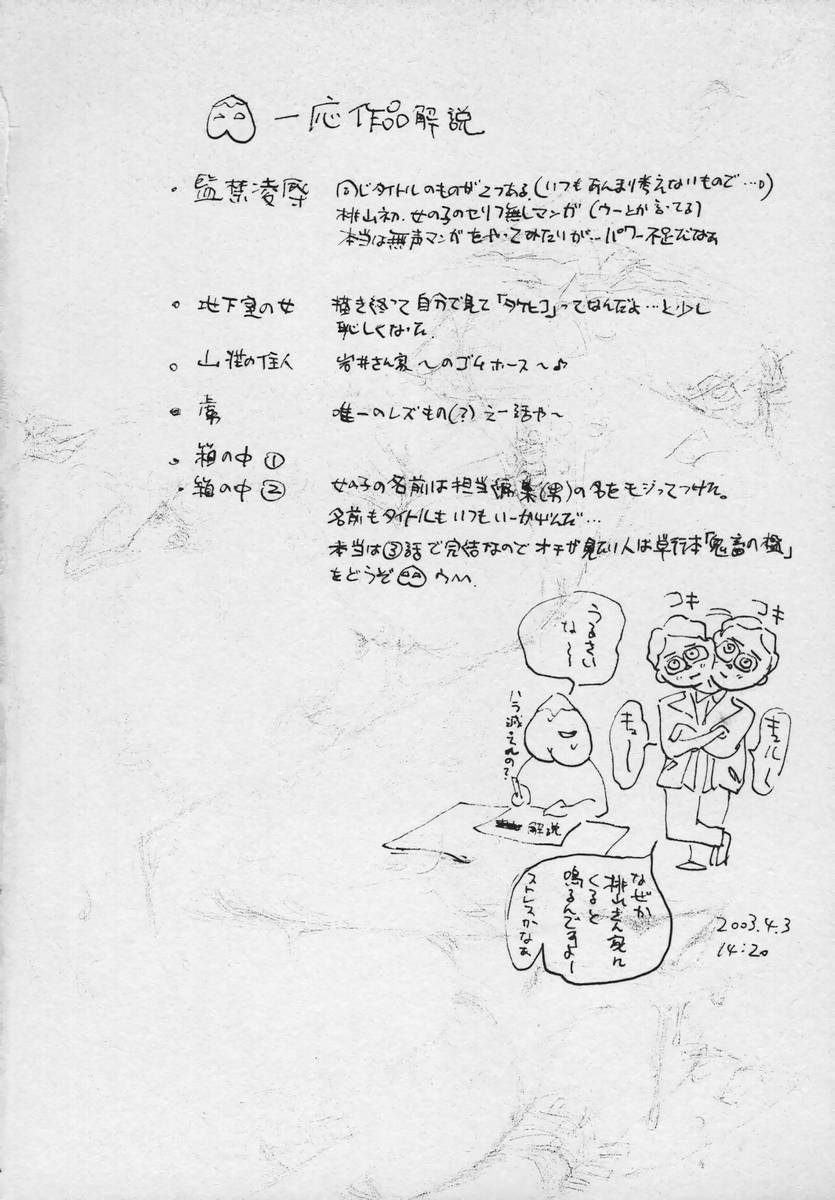 一応作品解説
・監禁凌辱
同じタイトルのものが2つある。(いつもあんまり考えないもので…。)
桃山初、女の子のセリフ無しマンガ(ウーとか言ってる)
本当は無声マンガをやってみたいが…パワー不足だなぁ
・地下室の女
描き終って自分で見て「タケヒコ」ってなんだよ…と少し
恥しくなった
・山荘の住人
岩井さん家〜のゴムホース〜♪
・虜
唯一のレズもの(?)えー話や〜
・箱の中①
・箱の中②
女の子の名前は担当編集(男)の名をモジってつけた。
名前もタイトルもいつもいーかげんだ…
本当は③話で完結なのでオチが見たい人は単行本「鬼畜の檻」
をどうぞ
コキ
コキ
うるさい
な〜〜
ハラ減ってんの?
キュ〜
キュル〜
解説
なぜか
桃山さん家に
くると
鳴るんですよー
ストレスかなぁ
2003.4.3
14:20